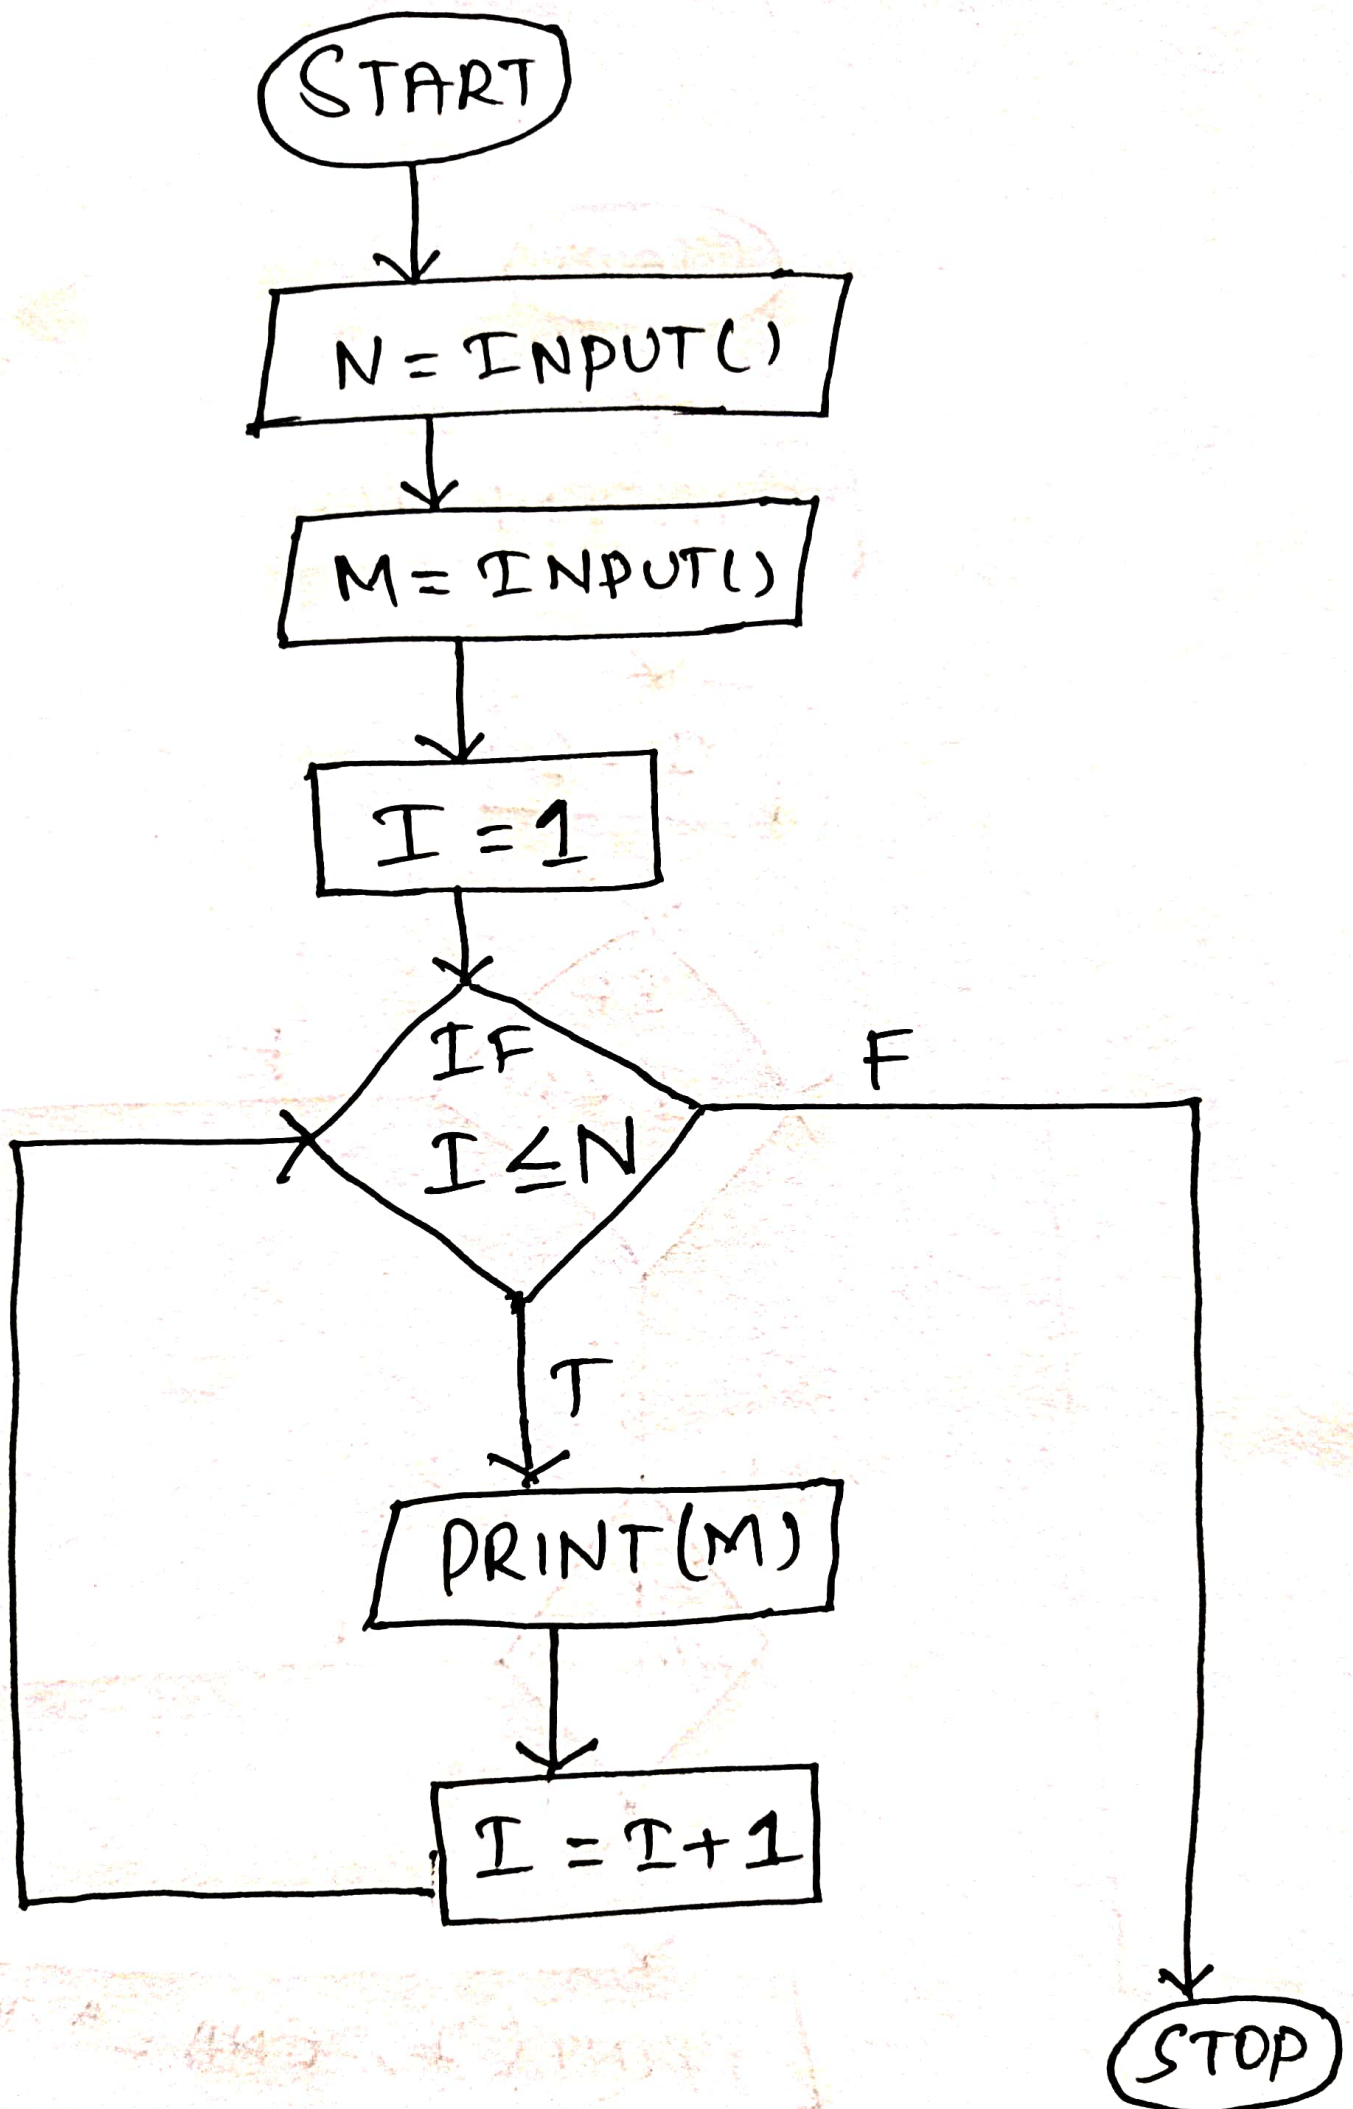 START
N = INPUT()
M = INPUT()
I = 1
IF
I ≤ N
F
T
PRINT(M)
I = I + 1
STOP